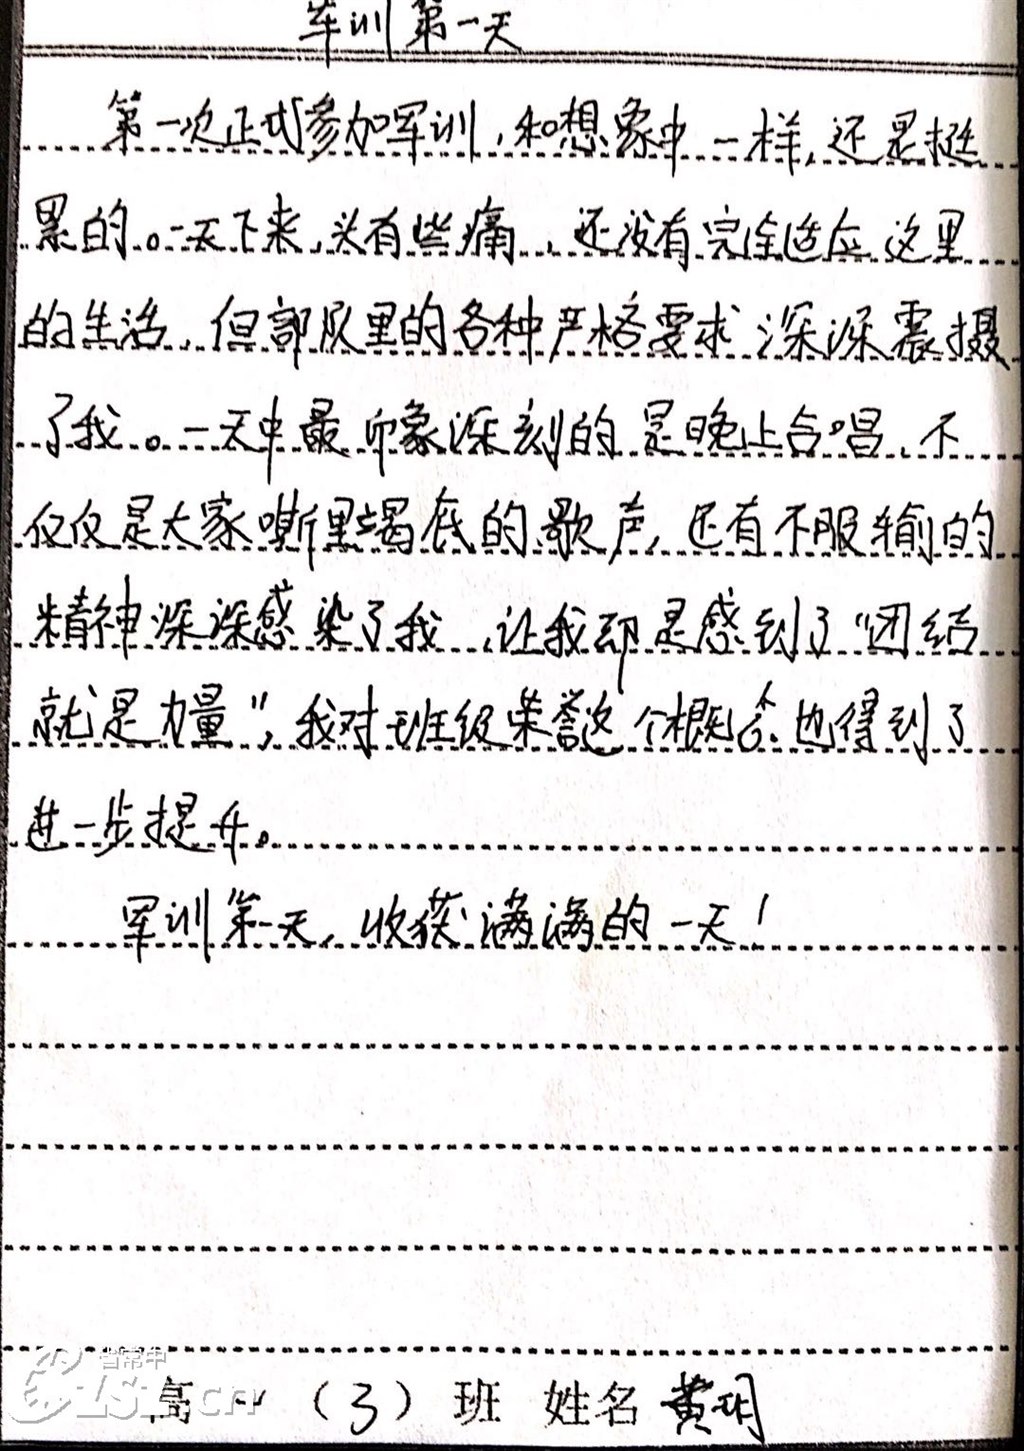 军训第一天
第一次正式参加军训，和想象中一样，还是挺
累的。一天下来，头有些痛，还没有完全适应这里
的生活，但部队里的各种严格要求深深震摄
了我。一天中最印象深刻的是晚上合唱，不
仅仅是大家嘶里竭底的歌声，还有不服输的
精神深深感染了我，让我却是感到了“团结
就是力量”，我对班级荣誉这个概念也得到了
进一步提升。
军训第一天，收获满满的一天！
省常中
高一（3）班 姓名 黄玥